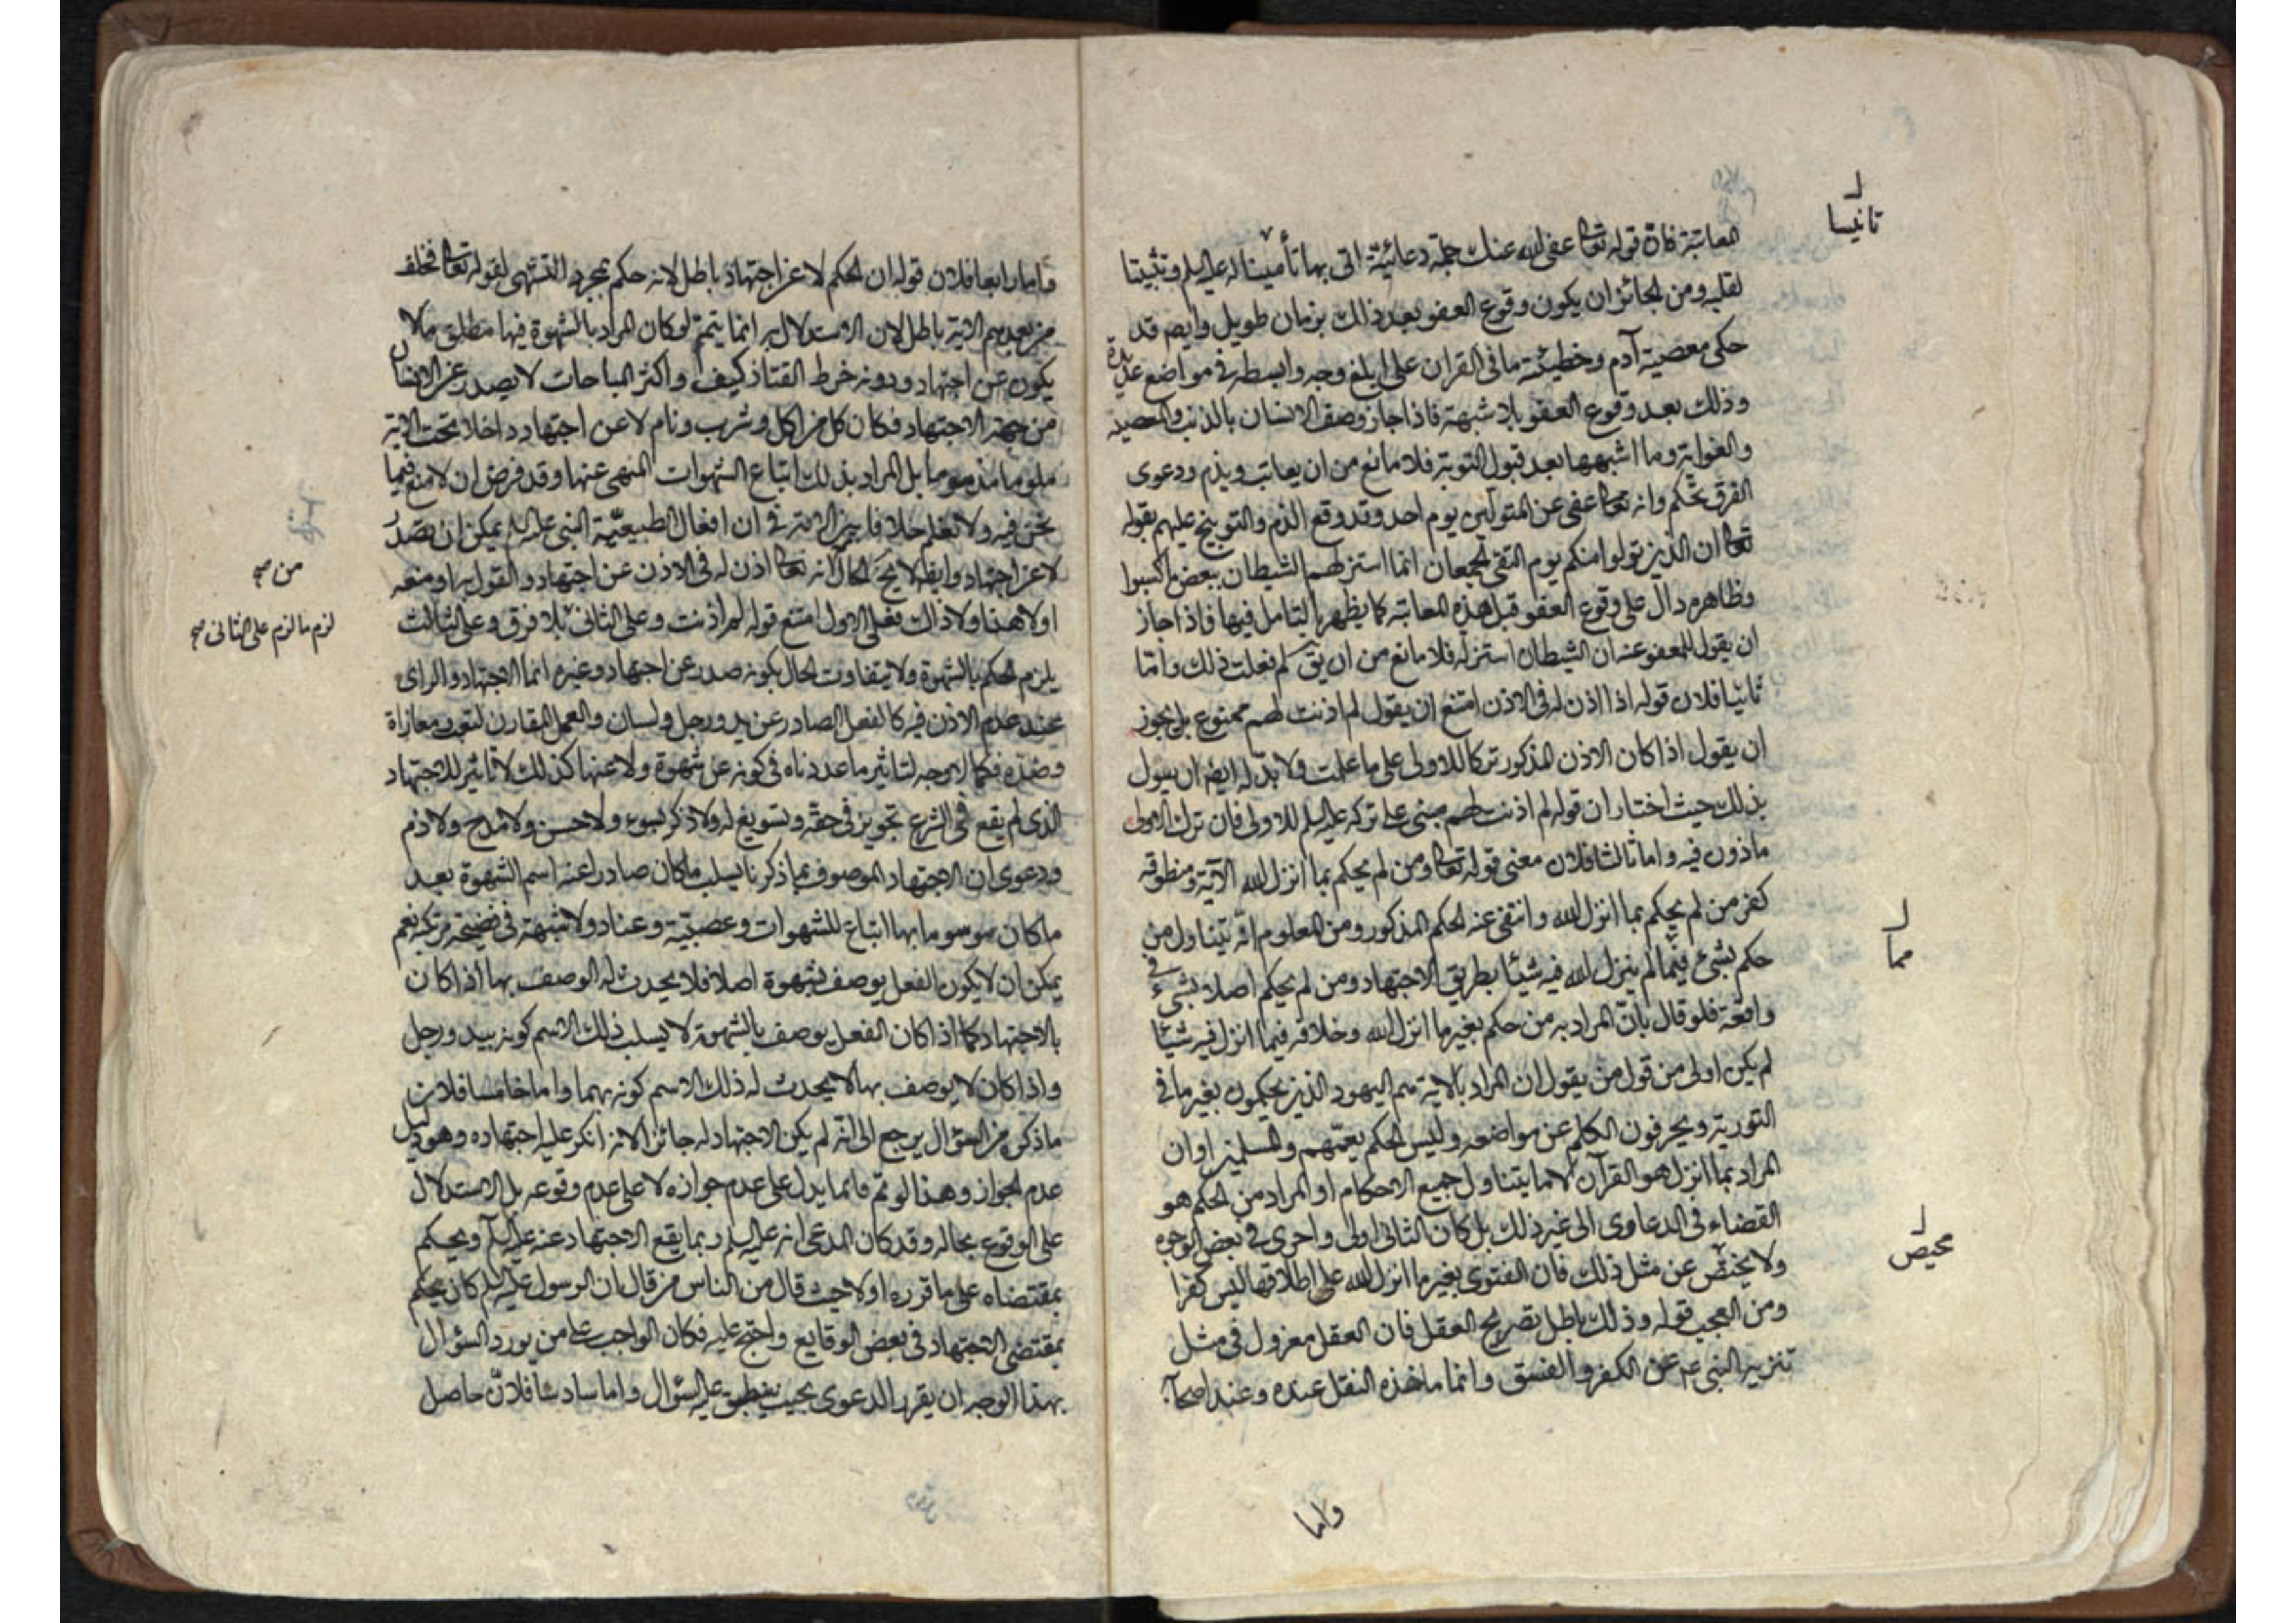 المعاتبة فان قوله تعا عفى الله عنك جملة دعائية اتى بها تأمينا له عليه السلم وتثبيتا
لقلبه ومن الجائز ان يكون وقوع العفو بعد ذلك بزمان طويل وايضا قد
حكى معصية آدم وخطيئته ما فى القران على ابلغ وجه وابسطه فى مواضع عديدة
وذلك بعد وقوع العفو بلا شبهة فاذا جاز وصف الانسان بالذنب والمعصية
والغواية وما اشبهها بعد قبول التوبة فلا مانع من ان يعاتب ويذم ودعوى
الفرق تحكم وانه تعا عفى عن المتولين يوم احد وقد وقع الذم والتوبيخ عليهم بقوله
تعا ان الذين تولوا منكم يوم التقى الجمعان انما استزلهم الشيطان ببعض ما كسبوا
وظاهره دال على وقوع العفو قبل هذه المعاتبة كما يظهر بالتامل فيها فاذا جاز
ان يقول للمعفو عنه ان الشيطان استزله فلا مانع من ان يق لم فعلت ذلك واما
ثانيا فلان قوله اذا اذن له فى الاذن امتنع ان يقول لم اذنت لهم ممنوع بل يجوز
ان يقول اذا كان الاذن المذكور تركا للاولى على ما علمت ولا بد له ايضا ان يقول
بذلك حيث اختار ان قوله لم اذنت لهم مبنى على تركه عليه السلم للاولى فان ترك الاولى
ماذون فيه واما ثالثا فلان معنى قوله تعا ومن لم يحكم بما انزل الله الآية ومنطوقه
كفر من لم يحكم بما انزل الله وانتفى عنه الحكم المذكور ومن المعلوم انه يتناول من
حكم بشئ فيما لم ينزل الله فيه شيئا بطريق الاجتهاد ومن لم يحكم اصلا بشئ فى
واقعة فلو قال بان المراد به من حكم بغير ما انزل الله وخلافه فيما انزل فيه شيئا
لم يكن اولى من قول من يقول ان المراد بالاية هم اليهود الذين يحكمون بغير ما فى
التورية ويحرفون الكلم عن مواضعه وليس الحكم يعمهم والمسلمين او ان
المراد بما انزل هو القرآن لا ما يتناول جميع الاحكام او المراد من الحكم هو
القضاء فى الدعاوى الى غير ذلك بل كان الثانى اولى واحرى فى بعض الوجوه
ولا عن مثل ذلك فان الفتوى بغير ما انزل الله على اطلاقها ليس كفرا
ومن العجب قوله وذلك باطل بصريح العقل فان العقل معزول فى مثل
تنزيه النبى عم عن الكفر والفسق وانما ماخذه النقل عنده وعند اصحابه
واما
تانيسا
مما
محيص
واما رابعا فلان قوله ان الحكم لا عن اجتهاد باطل لانه حكم بمجرد التشهى لقوله تعا فخلف
من بعدهم الاية باطل لان الاستدلال به انما يتم لو كان المراد بالشهوة فيها مطلق ما لا
يكون عن اجتهاد ودونه خرط القتاد كيف واكثر المباحات لا يصدر عن الانسان
من جهة الاجتهاد فكان كل من اكل وشرب ونام لا عن اجتهاد داخلا تحت الاية
ملوما مذموما بل المراد بذلك اتباع الشهوات المنهى عنها وقد فرض ان لا منع فيما
نحن فيه ولا نعلم خلافا بين الامة فى ان افعال الطبيعية النبى عليه السلم يمكن ان تصدر
لا عن اجتهاد وايضا لا يخ الحال انه تعا اذن له فى الاذن عن اجتهاد والقول به او منعه
اولا هذا ولا ذاك فعلى الاول امتنع قوله لم اذنت وعلى الثانى بلا فرق وعلى الثالث
يلزم الحكم بالشهوة ولا يتفاوت الحال بكونه صدر عن اجتهاد وغيره انما الاجتهاد والراى
عند عدم الاذن فيه كالفعل الصادر عن يد ورجل ولسان والعمل المقارن
وضده فكما لا وجه لتاثير ما عددناه فى كونه عن شهوة ولا عنها كذلك لا تاثير للاجتهاد
الذى لم يقع فى الشرع تجويز فى حقه وتسويغ له ولا ذكر بسوء ولا حسن ولا مدح ولا ذم
ودعوى ان الاجتهاد الموصوف بما ذكرنا يسلب ما كان صادرا عنه اسم الشهوة بعد
ما كان موسوما بها اتباع للشهوات وعصبية وعناد ولا شبهة فى فضيحة مرتكبه نعم
يمكن ان لا يكون الفعل يوصف بشهوة اصلا فلا يحدث له الوصف بها اذا كان
بالاجتهاد كما اذا كان الفعل يوصف بالشهوة لا يسلب ذلك الاسم كونه بيد ورجل
واذا كان لا يوصف بها لا يحدث له ذلك الاسم كونه بهما واما خامسا فلان
ما ذكر من السؤال يرجع الى انه لم يكن الاجتهاد له جائزا لانه انكر عليه اجتهاده وهو دليل
عدم الجواز وهذا لو تم فانما يدل على عدم جوازه لا على عدم وقوعه بل الاستدلال
على الوقوع بحاله وقد كان المدعى انه عليه السلم ربما يقع الاجتهاد عنه عليه السلم ويحكم
بمقتضاه على ما قرره اولا حيث قال من الناس من قال بان الرسول عليه السلم كان يحكم
بمقتضى الاجتهاد فى بعض الوقايع واحتج عليه فكان الواجب على من يورد السؤال
بهذا الوجه ان يقرر الدعوى بحيث ينطبق عليه السؤال واما سادسا فلان حاصل
من صح
لزم ما لزم على الثانى صح